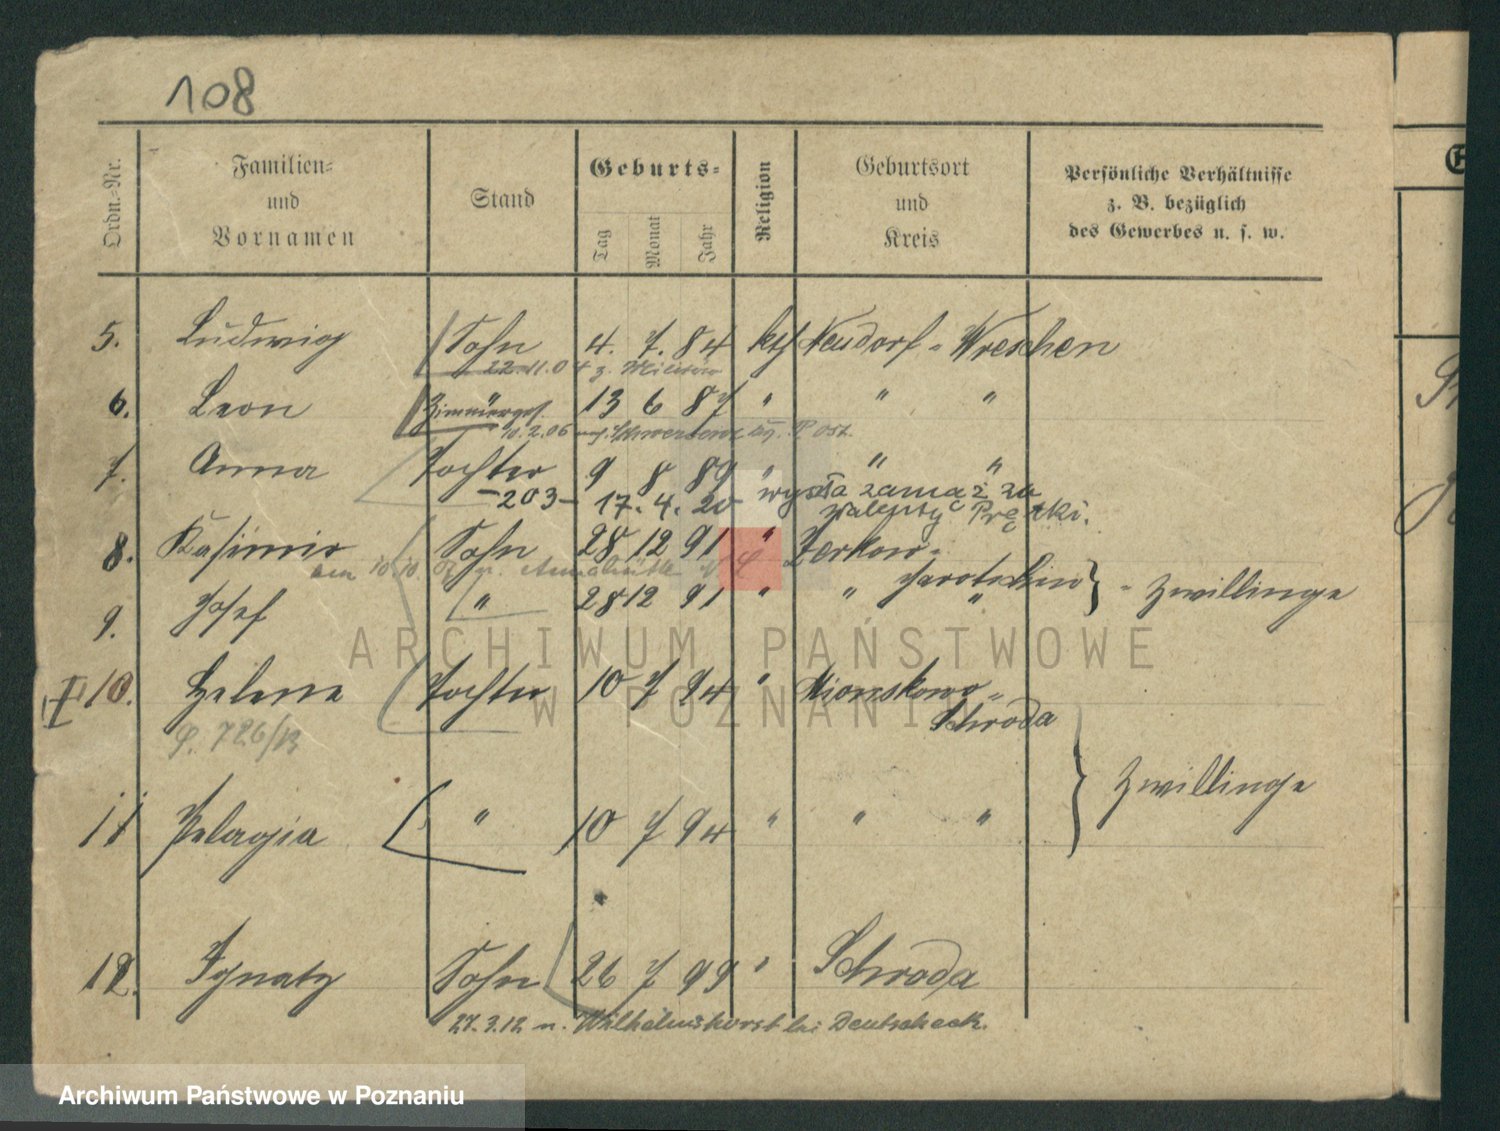 108
Ordn.-Nr. Familien- und Vornamen Stand Geburts- Tag Monat Jahr Religion Geburtsort und Kreis Persönliche Verhältnisse z. B. bezüglich des Gewerbes u. s. w.
5. Ludwig Sohn 4. 7. 84 kth Neudorf - Wreschen
22.11.04 z. Militär
6. Leon " 13 6 87 " " "
Zimmerges.
10.2.06 Post.
7. Anna Tochter 9 8 89 " " "
-203- 17.4.20 wyszła zamąż za
Walenty Pr
8. Kasimir Sohn 28 12 91 " Zerkow -
Jarotschin
am 10.10.
9. Josef " 28 12 91 " " " } - Zwillinge
II 10. Helene Tochter 10 7 94 " Mionskowo -
Schroda
P. 726/13
} Zwillinge
11 Pelagia " 10 7 94 " " "
12. Ignatz Sohn 26 7 99 " Schroda
27.3.12 n. Wilhelmshorst bei Deutscheck.
ARCHIWUM PAŃSTWOWE
W POZNANIU
Archiwum Państwowe w Poznaniu